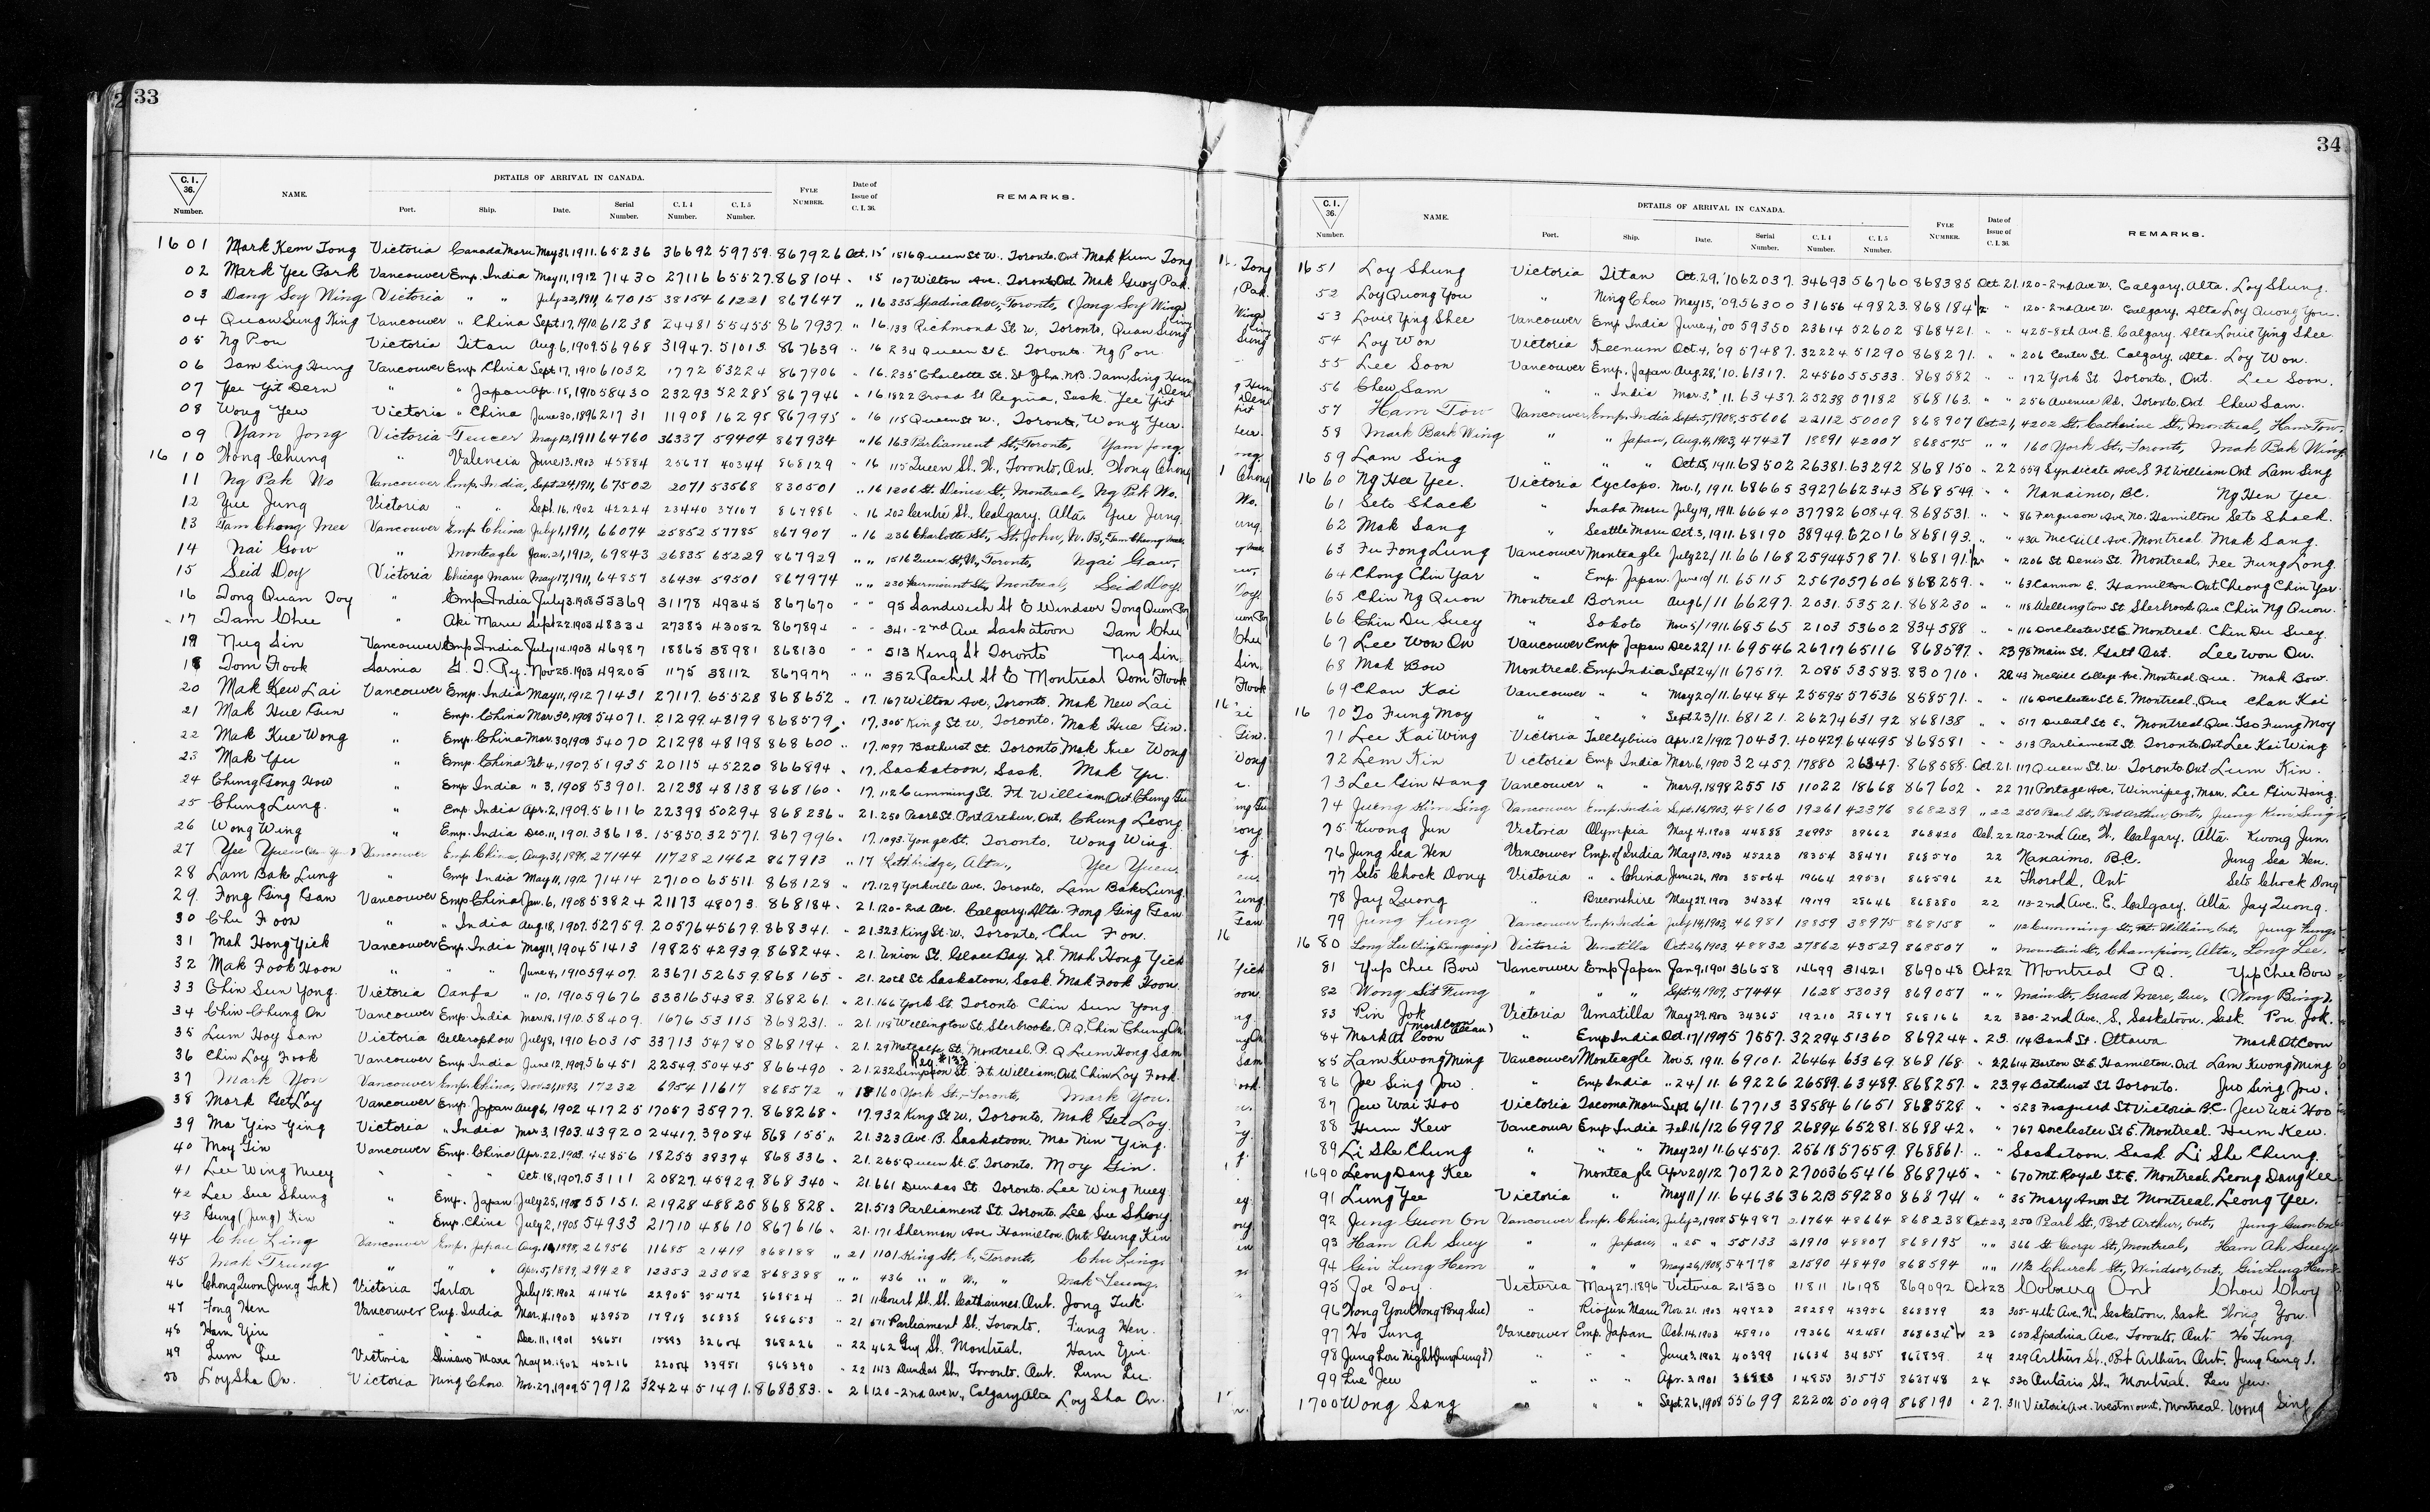 33
C.I. 36. Number.	NAME.	DETAILS OF ARRIVAL IN CANADA.	Port.	Ship.	Date.	Serial Number.	C.I.4 Number.	C.I.5 Number.	FYLE NUMBER.	Date of Issue of C.I.36.	REMARKS.
1601 Mark Kem Tong Victoria Canada Maru May 31, 1911. 65236 36692 59759. 867926 Oct. 15 1516 Queen St W. Toronto. Ont Mak Kum Tong
02 Mark Yee Park Vancouver Emp. India May 11, 1912 71430 27116 65527. 868104 " 15 107 Wilton Ave. Toronto Ont Mak Guoy Pak.
03 Dang Soy Wing Victoria " " July 22, 1911, 67015 38154 61221 867647 " 16 335 Spadina Ave., Toronto, (Jang Soy Wing)
04 Quan Sung King Vancouver " China Sept. 17, 1910. 61238 24481 55455 867937. " 16. 133 Richmond St W. Toronto, Quan Sung King
05 Ng Pon Victoria Titan Aug 6, 1909. 56968 31947. 51013. 867639 " 16 234 Queen St E. Toronto. Ng Pon.
06 Tam Sing Hung Vancouver Emp. China Sept. 17, 1910 61032 1772 53224 867906 " 16. 235 Charlotte St. St John. N.B. Tam Sing Hung
07 Yee Yit Dern " " Japan Apr. 15, 1910 58430 23293 52285 867946 " 16 1822 Broad St Regina, Sask Yee Yist Dent
08 Wong Yew Victoria " China June 30, 1896 21731 11908 16295 867995 " 16 115 Queen St W., Toronto, Wong Yuen.
09 Yam Jong Victoria Teucer May 12, 1911 64760 36337 59404 867934 " 16 163 Parliament St., Toronto, Yam Jong.
1610 Hong Chung " Valencia June 13. 1903 45884 25677 40344 868129 " 16 115 Queen St. W., Toronto, Ont. Hong Chong
11 Ng Pak Wo Vancouver Emp. India, Sept. 24, 1911, 67502 2071 53568 830501 " 16 1206 St. Denis St., Montreal, Ng Pak Wo.
12 Yue Jung Victoria " " Sept. 16. 1902 42224 23440 37107 867986 " 16 202 Centre St., Calgary. Alta. Yue Jung.
13 Tam Chong Mee Vancouver Emp China July 1, 1911, 66074 25852 57785 867907 " 16 236 Charlotte St., St. John, N.B., Tam Chong Mee
14 Nai Gow " Monteagle Jan. 21, 1912, 69843 26835 65229 867929 " " 1516 Queen St., W., Toronto, Ngai Gaw,
15 Seid Doy Victoria Chicago Maru May 17, 1911, 64857 36434 59501 867974 " " 230 Fairmount St., Montreal, Seid Doy.
16 Tong Quan Toy " Emp India July 3. 1908 55369 31178 49345 867670 " " 95 Sandwich St E Windsor Tong Quon
17 Tam Chee " Aki Maru Sept 22. 1903 48334 27383 43052 867894 " " 341 - 2nd Ave Saskatoon Tam Chu
19 Nug Sin Vancouver Emp India July 14. 1903 46987 18865 38981 868130 " " 513 King St Toronto Nug Sin.
18 Tom Hook Sarnia G.T. Ry. Nov 25. 1903 49205 1175 38112 867977 " " 352 Rachel St E Montreal Tom Hook
20 Mak Kew Lai Vancouver Emp. India May 11, 1912 71431 27117 65528 868652 " 17. 167 Wilton Ave, Toronto. Mak New Lai
21 Mak Hue Gun " Emp. China Mar. 30, 1908 54071. 21299. 48199 868579, " 17. 305 King St. W. Toronto. Mak Hue Gin.
22 Mak Kue Wong " Emp. China Mar. 30, 1908 54070 21298 48198 868600 " 17. 1097 Bathurst St. Toronto Mak Kue Wong
23 Mak Yu " Emp. China Feb 4, 1907 51935 20115 45220 866894 " 17. Saskatoon, Sask. Mak Yu.
24 Chung Gong How " Emp India " 3, 1908 53901. 21238 48138 868160 " 17. 112 Cumming St. Ft. William, Ont. Chung
25 Chung Lung. " Emp India Apr. 2, 1909. 56116 22398 50294 868236 " 21. 250 Pearl St. Port Arthur, Ont. Chung Leong.
26 Wong Wing " Emp. India Dec. 11, 1901. 38618. 15850. 32571. 867996 " 17. 1093. Yonge St. Toronto. Wong Wing.
27 Yee Yuen Vancouver Emp. China, Aug. 31, 1898, 27144 11728 21462 867913 " 17 Lethbridge, Alta., Yee Yuen.
28 Lam Bak Lung " Emp India May 11, 1912 71414 27100 65511. 868128 " 17. 129 Yorkville Ave. Toronto. Lam Bak Lung
29. Fong Ging Gan Vancouver Emp China Jan. 6, 1908 53824 21173 48073. 868184 " 21. 120-2nd Ave. Calgary, Alta. Fong Ging Gan
30 Chu Foon " " India Aug. 18, 1907. 52759. 20576 45679. 868341. " 21. 323 King St. W., Toronto, Chu Fon.
31 Mah Hong Yick Vancouver Emp. India May 11, 1904 51413 19825 42939. 868244 " 21. Union St. Glace Bay. N.S. Mah Hong Yick
32 Mak Fook Hoon " " " June 4, 1910 59407. 23671 52659. 868165 " 21. 20th St Saskatoon, Sask. Mak Fook Hoon.
33 Chin Sun Yong. Victoria Oanfa " 10, 1910 59676 33316 54383. 868261. " 21. 166 York St Toronto Chin Sun Yong.
34 Chin Chung On Vancouver Emp. India Mar. 18, 1910. 58409. 1676 53115 868231. " 21. 118 Wellington St. Sherbrooke, P.Q. Chin Chung On
35 Lum Hoy Sam Victoria Bellerophon July 8, 1910 60315 33713 54780 868194 " 21. 29 Metcalfe St. Montreal. P.Q Lum Hong Sam
36 Chin Loy Fook Vancouver Emp India June 12, 1909. 56451 22549. 50445 866490 " 21. 232 Simpson St. Ft. William, Ont. Chin Loy Fook.
37 Mark Yon Vancouver Emp. China, 17232 6954 11617 868572 " 18 160 York St., Toronto, Mark You.
38 Mark Get Loy Vancouver Emp. Japan Aug 6, 1902 41725 17087 35977. 868268 " 17. 932 King St W. Toronto. Mak Get Loy.
39 Ma Yin Ying Victoria " India Mar. 3, 1903. 43920 24417. 39084 868155 " 21. 323 Ave B. Saskatoon. Ma Nin Ying.
40 Moy Gin Vancouver Emp. China Apr. 22, 1903. 44856 18255 39374 868336 " 21. 265 Queen St. E. Toronto. Moy Gin.
41 Lee Wing Nuey " " " Oct 18, 1907. 53111 20827. 45929. 868340 " 21. 661 Dundas St. Toronto. Lee Wing Nuey
42 Lee Sue Shung " Emp. Japan July 25, 1908 55151. 21928 48825 868828 " 21. 513 Parliament St. Toronto. Lee Sue Sheong
43 Gung (Jung) Kin " Emp. China July 2, 1908 54933 21710 48610 867616 " 21. 171 Sherman Ave. Hamilton, Ont. Gung Kin
44 Chu Ling Vancouver Emp. Japan Aug. 1898, 26956 11685 21419 868188 " 21 1101 King St. E., Toronto, Chu Ling.
45 Mak Trung " " " Apr. 5, 1899, 29428 12353 23082 868388 " " 436 " " W., " Mak Leung.
46 Chong Quon (Jung Tuk) Victoria Tartar July 15. 1902 41476 22905 35472 868524 " 21 11 Court St. St. Catharines. Ont. Jong Tuk.
47 Fong Hen Vancouver Emp. India Mar. 4. 1903 43950 17918 36838 868653 " 21 571 Parliament St. Toronto. Fung Hen.
48 Ham Yin " " " Dec. 11, 1901 38651 15883 32604 868226 " 22 462 Guy St. Montreal. Ham Yin.
49 Lum Lee Victoria Shinano Maru May 20. 1902 40216 22004 33951 868390 " 22 1113 Dundas St., Toronto. Ont. Lum Lee.
50 Loy Sha On. Victoria Ning Chow. Nov. 27, 1909. 57912 32424 51491. 868383. " 21 120-2nd Ave W., Calgary Alta Loy Sha On.
34
C.I. 36. Number.	NAME.	DETAILS OF ARRIVAL IN CANADA.	Port.	Ship.	Date.	Serial Number.	C.I.4 Number.	C.I.5 Number.	FYLE NUMBER.	Date of Issue of C.I.36.	REMARKS.
1651 Loy Shung Victoria Titan Oct. 29, '10 62037. 34693 56760 868385 Oct 21. 120-2nd Ave W. Calgary. Alta. Loy Shung.
52 Loy Quong You " Ning Chow May 15, '09. 56300 31656 49823. 868184 1/2 " 120-2nd Ave W. Calgary. Alta Loy Quong You.
53 Louie Ying Shee Vancouver Emp India June 4, '00 59350 23614 52602 868421. " " 425-8th Ave E. Calgary. Alta Louie Ying Shee
54 Loy Won Victoria Keemun Oct 4, '09 57487. 32224 51290 868271. " " 206 Center St. Calgary. Alta. Loy Won.
55 Lee Soon Vancouver Emp. Japan Aug 28, '10. 61317. 24560 55533. 868582 " " 172 York St Toronto, Ont. Lee Soon.
56 Chew Sam " " India Mar. 3, '11. 63437. 25238 57182 868163. " " 256 Avenue Rd. Toronto. Ont Chew Sam.
57 Ham Tow Vancouver, Emp. India Sept. 5, 1908, 55606 22112 50009 868907 Oct 21, 4202 St. Catherine St., Montreal, Ham Tow.
58 Mark Bark Wing " " Japan, Aug. 4, 1903, 47427 18891 42007 868575 " " 160 York St., Toronto, Mak Bak Wing
59 Lam Sing " " " Oct 15, 1911. 68502 26381. 63292 868150 " 22 559 Syndicate Ave. S Ft William Ont Lam Sing
1660 Ng Hee Yee. Victoria Cyclops. Nov. 1, 1911. 68665 39276 62343 868549. " " Nanaimo, B.C. Ng Hen Yee
61 Seto Shack " Inaba Maru July 19, 1911. 66640 37782 60849. 868531. " " 86 Ferguson Ave. No. Hamilton Seto Shack.
62 Mak Sang " Seattle Maru Oct 3, 1911. 68190 38949. 62016 868193. " " 43A McGill Ave. Montreal Mak Sang.
63 Fu Fong Lung Vancouver Monteagle July 22/11. 66168 25944 57871. 868191 1/2 " " 1206 St Denis St. Montreal, Fee Fung Long.
64 Chong Chin Yar " Emp. Japan. June 10/11. 65115 25670 57606 868259. " " 63 Cannon E. Hamilton. Ont. Cheong Chin Yar.
65 Chin Ng Quon Montreal Bornu Aug 6/11 66297. 2031. 53521. 868230 " " 118 Wellington St Sherbrook Que. Chin Ng Quon.
66 Chin Du Suey " Sokoto Nov. 5/1911. 68565 2103 53602 834588 " " 116 Dorchester St E. Montreal. Chin Du Suey.
67 Lee Won On Vancouver Emp Japan Dec 22/11. 69546 26717 65116 868597. " 23 98 Main St. Galt Ont. Lee Won On.
68 Mak Bow Montreal. Emp India Sept 24/11 67517. 2085 53583. 830710 " 43 McGill College Ave. Montreal Que. Mak Bow.
69 Chan Kai Vancouver " " May 20/11. 64484 25595 57536 858571. " " 116 Dorchester St E. Montreal, Que Chan Kai
1670 To Fung Moy " " " Sept 23/11. 68121. 26274 63192 868138 " " 517 St E., Montreal Que. Tso Fung Moy
71 Lee Kai Wing Victoria Talthybius Apr. 12/1912 70437. 40427. 64495 868581 " " 513 Parliament St. Toronto, Ont Lee Kai Wing
72 Lem Kin Victoria Emp India Mar. 6, 1900 32457. 17880 26347. 868588. Oct. 21. 117 Queen St. W. Toronto. Ont Lum Kin.
73 Lee Gin Hang Vancouver " " Mar. 9, 1898 25515 11022 18668 867602 " 22 771 Portage Ave, Winnipeg, Man. Lee Gin Hang.
74 Jueng Kim Sing Vancouver Emp. India Sept. 16, 1903, 48160 19261 42376 868239 " 22 250 Pearl St., Port Arthur, Ont., Jung Kim Sing
75 Kwong Jun Victoria Olympia May 4. 1903 44888 24995 39662 868420 Oct. 22 120-2nd Ave, W., Calgary. Alta. Kwong Jun.
76 Jung Sea Hen Vancouver Emp. of India May 13. 1903 45223 18354 38471 868570 22 Nanaimo. B.C. Jung Sea Hen.
77 Seto Chock Dong Victoria " " China June 26, 1900 35064 19664 29531 868596 22 Thorold, Ont Seto Chock Dong
78 Jay Quong " Breconshire May 27. 1900 34334 19179 28646 868380 22 113-2nd Ave., E. Calgary. Alta Jay Quong.
79 Jung Fung Vancouver Emp. India July 14, 1903, 46981 18859 38975 868158 " 112 Cumming St., Ft. William, Ont., Jung Fung
1680 Long Lee Victoria Umatilla Oct. 26, 1903, 48832 27862 43529 868507 " Mountain St., Champion, Alta., Long Lee.
81 Yup Chee Bow Vancouver Emp Japan Jan 9, 1901 36658 14699 31421 869048 Oct 22 Montreal P.Q. Yip Chee Bow
82 Wong Sit Fung " " " Sept. 4, 1909, 57444 1628 53039 869057 " " Main St., Grand Mere, Que., (Wong Bing).
83 Pin Jok Victoria Umatilla May 29. 1900 34365 19210 28677 868166 22 330-2nd Ave., S. Saskatoon. Sask Pon Jok.
84 Mark At Coon " Emp India Oct. 17/1909 57557. 32294 51360 869244 " 23. 114 Bank St. Ottawa Mark At Coon
85 Lam Kwong Ming Vancouver Monteagle Nov. 5, 1911. 69101. 26464 63369. 868168. " 22 614 Burton St E. Hamilton. Ont Lam Kwong Ming
86 Joe Sing Jow. " Emp India " 24/11. 69226 26589. 63489. 868257. " 23 94 Bathurst St Toronto. Juo Sing Jow.
87 Jew Wai Hoo Victoria Tacoma Maru Sept. 6/11. 67713 38584 61651 868528. " " 523 Fisguard St Victoria B.C. Jew Wai Hoo
88 Hum Kew Vancouver Emp India Feb. 16/12 69978 26894 65281. 868842. " " 767 Dorchester St E. Montreal. Hum Kew.
89 Li She Chung " " " May 20/11. 64507. 25618 57559. 868861. " Saskatoon. Sask Li She Chung.
1690 Leong Dang Kee " Monteagle Apr 20/12 70720 27003 65416 868745 " " 670 Mt. Royal St. E. Montreal. Leong Dang Kee
91 Lung Yee Victoria " May 11/11. 64636 36213 59280 868741 " " 35 Mary Ann St Montreal. Leong Yee.
92 Jung Guon On Vancouver Emp. China, July 2, 1908 54987 21764 48664 868238 Oct 23, 250 Pearl St., Port Arthur, Ont., Jung Guon On
93 Ham Ah Suey " " Japan, " 25 " 55133 21910 48807 868195 " " 366 St. George St., Montreal, Ham Ah Suey
94 Gin Lung Hem " " " May 26, 1908, 54778 21590 48490 868594 " " Church St., Windsor, Ont., Gin Lung Hem
95 Joe Toy Victoria May 27. 1896 Victoria 21530 11811 16198 869092 Oct 23 Cobourg Ont Chow Choy
96 Wong You (Wong Pong Sue) " Riojun Maru Nov. 21. 1903 49723 28289 43956 868379 23 305-4th Ave. N., Saskatoon, Sask Wong You.
97 Ho Tung Vancouver Emp. Japan Oct. 14. 1903 48910 19366 42481 868634 1/2 23 600 Spadina Ave., Toronto, Ont Ho Tung.
98 Jung Lou Night (Jung Lung I) " " " June 3, 1902 40399 16634 34355 868839. 24 229 Arthur St., Port Arthur Ont. Jung Lung I.
99 Lue Jew " " " Apr. 3. 1901 14850 31575 868748 24 530 Ontario St., Montreal. Leu Yew.
1700 Wong Sang " " " Sept. 26, 1908 55699 22202 50099 868190 " 27. 311 Victoria Ave. Westmount, Montreal. Wong Sing